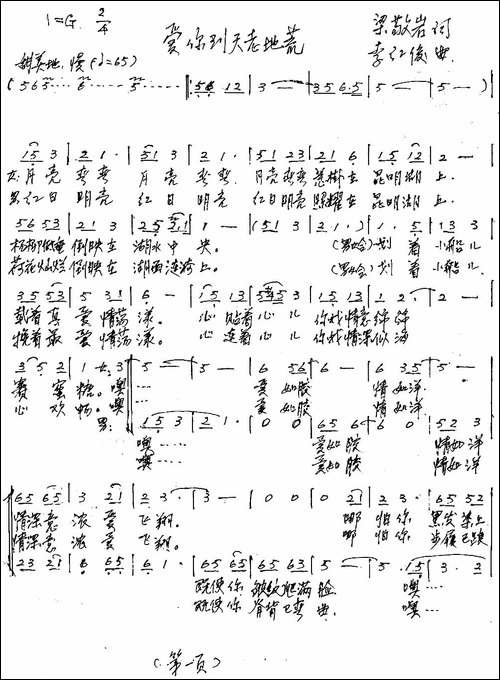 1=G 2/4
爱你到天老地荒
梁敬岩 词
李红俊 曲
甜美地,慢(♩=65)
(565···· 6···· 5···· 56 12 | 3 — | 35 6·5 | 5 — | 5 — )
15 3 | 21 · | 51 3 | 21 · | 51 23 | 21 6 | 15 12 | 2 —
女:月亮弯弯 月亮弯弯 月亮弯弯 悬挂在 昆明湖上.
男:红日明亮 红日明亮 红日明亮 照耀在 昆明湖上.
56 53 | 21 3 | 25 | 1 — | (51 3 | 21 ·) | 1 · 5 | 13 3
杨柳低垂 倒映在 湖水中央。 划着小船儿
荷花灿烂 倒映在 湖面涟漪上。 划着小船儿
35 53 | 5 31 | 6 — | 15 13 | 5 53 | 15 13 | 1 2 · | 2 —
载着真爱情荡漾。 心贴着心儿 你我情意绵绵
载着最爱情荡漾。 心连着心儿 你我情深似海
3 5 2 | 1 · 6 3 | 5 — | 5 — | 6 56 | 6 — | 6 35 | 5 —
赛蜜糖。噢 ···· 爱如胶 情如洋
心欢畅。噢 ···· 爱如胶 情如洋
男: 15 3 | 21 · | 0 0 | 65 6 | 6 0 | 52 3
噢····· 爱如胶 情如洋
噢····· 爱如胶 情如洋
65 65 | 3 21 | 2 3 · | 3 — | 0 0 | 0 21 | 2 3 · | 65 52
情深意浓爱飞翔. 哪怕你 黑发染上
情深意浓爱飞翔. 哪怕你 步履已跌
23 21 | 6 65 | 6 1 · | 65 65 | 65 63 | 5 — | 5 · 15 | 3 · 3
既使你 皱纹爬满脸 噢····
既使你 脊背已弯曲. 噢····
(第一页)